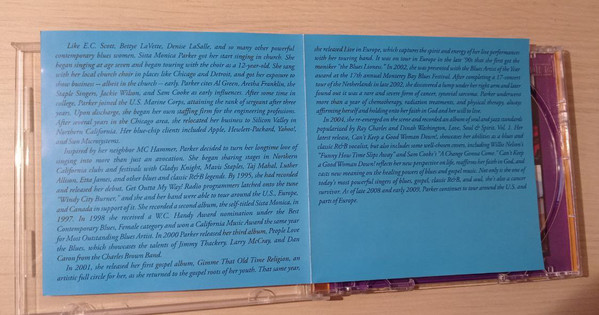 Like E.C. Scott, Bettye LaVette, Denise LaSalle, and so many other powerful
contemporary blues women, Sista Monica Parker got her start singing in church. She
began singing at age seven and began touring with the choir as a 12-year-old. She sang
with her local church choir in places like Chicago and Detroit, and got her exposure to
show business — albeit in the church — early. Parker cites Al Green, Aretha Franklin, the
Staple Singers, Jackie Wilson, and Sam Cooke as early influences. After some time in
college, Parker joined the U.S. Marine Corps, attaining the rank of sergeant after three
years. Upon discharge, she began her own staffing firm for the engineering profession.
After several years in the Chicago area, she relocated her business to Silicon Valley in
Northern California. Her blue-chip clients included Apple, Hewlett-Packard, Yahoo!,
and Sun Microsystems.
Inspired by her neighbor MC Hammer, Parker decided to turn her longtime love of
singing into more than just an avocation. She began sharing stages in Northern
California clubs and festivals with Gladys Knight, Mavis Staples, Taj Mahal, Luther
Allison, Etta James, and other blues and classic R&B legends. By 1995, she had recorded
and released her debut, Get Outta My Way! Radio programmers latched onto the tune
"Windy City Burner," and she and her band were able to tour around the U.S., Europe,
and Canada in support of it. She recorded a second album, the self-titled Sista Monica, in
1997. In 1998 she received a W.C. Handy Award nomination under the Best
Contemporary Blues, Female category and won a California Music Award the same year
for Most Outstanding Blues Artist. In 2000 Parker released her third album, People Love
the Blues, which showcases the talents of Jimmy Thackery, Larry McCray, and Dan
Caron from the Charles Brown Band.
In 2001, she released her first gospel album, Gimme That Old Time Religion, an
artistic full circle for her, as she returned to the gospel roots of her youth. That same year,
she released Live in Europe, which captures the spirit and energy of her live performances
with her touring band. It was on tour in Europe in the late '90s that she first got the
moniker "the Blues Lioness." In 2002, she was presented with the Blues Artist of the Year
award at the 17th annual Monterey Bay Blues Festival. After completing a 17-concert
tour of the Netherlands in late 2002, she discovered a lump under her right arm and later
found out it was a rare and severe form of cancer, synovial sarcoma. Parker underwent
more than a year of chemotherapy, radiation treatments, and physical therapy, always
affirming herself and holding onto her faith in God and her will to live.
In 2004, she re-emerged on the scene and recorded an album of soul and jazz standards
popularized by Ray Charles and Dinah Washington, Love, Soul & Spirit, Vol. 1. Her
latest release, Can't Keep a Good Woman Down!, showcases her abilities as a blues and
classic R&B vocalist, but also includes some well-chosen covers, including Willie Nelson's
"Funny How Time Slips Away" and Sam Cooke's "A Change Gonna Come." Can't Keep
a Good Woman Down! reflects her new perspective on life, reaffirms her faith in God, and
casts new meaning on the healing powers of blues and gospel music. Not only is she one of
today's most powerful singers of blues, gospel, classic R&B, and soul, she's also a cancer
survivor. As of late 2008 and early 2009, Parker continues to tour around the U.S. and
parts of Europe.